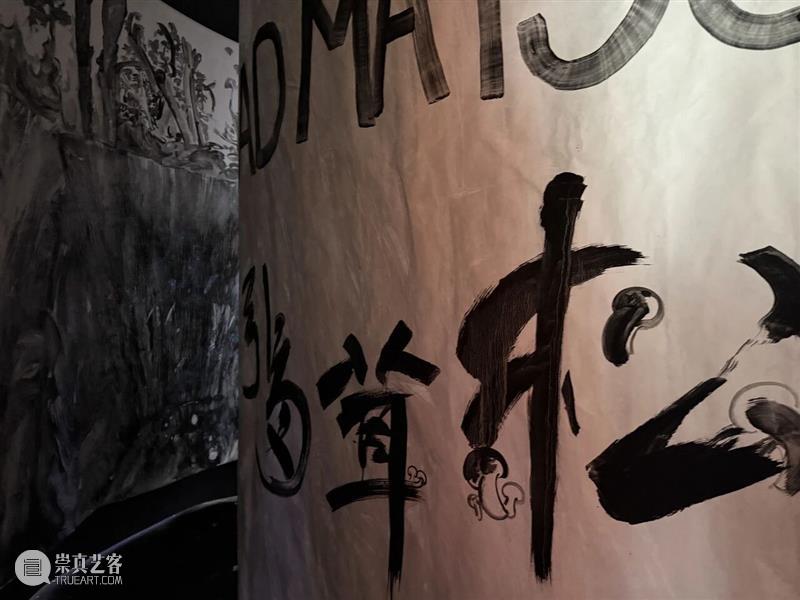 AD MATSU
松茸
崇真艺客
TRUEART.COM